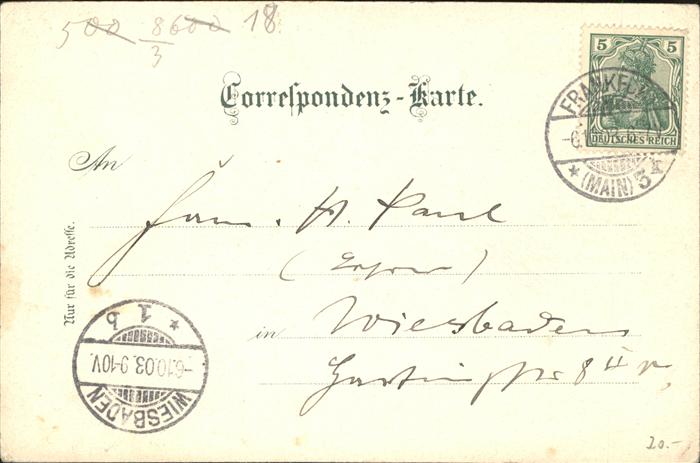 500 8600/3 18
5 5
DEUTSCHES REICH
FRANKFURT
(MAIN)
Correspondenz-Karte.
An
H. Paul
Nur für die Adresse.
in Wiesbaden
Hartingstr 8 II
1 b
-6.10.03.9-10V.
WIESBADEN
20.-